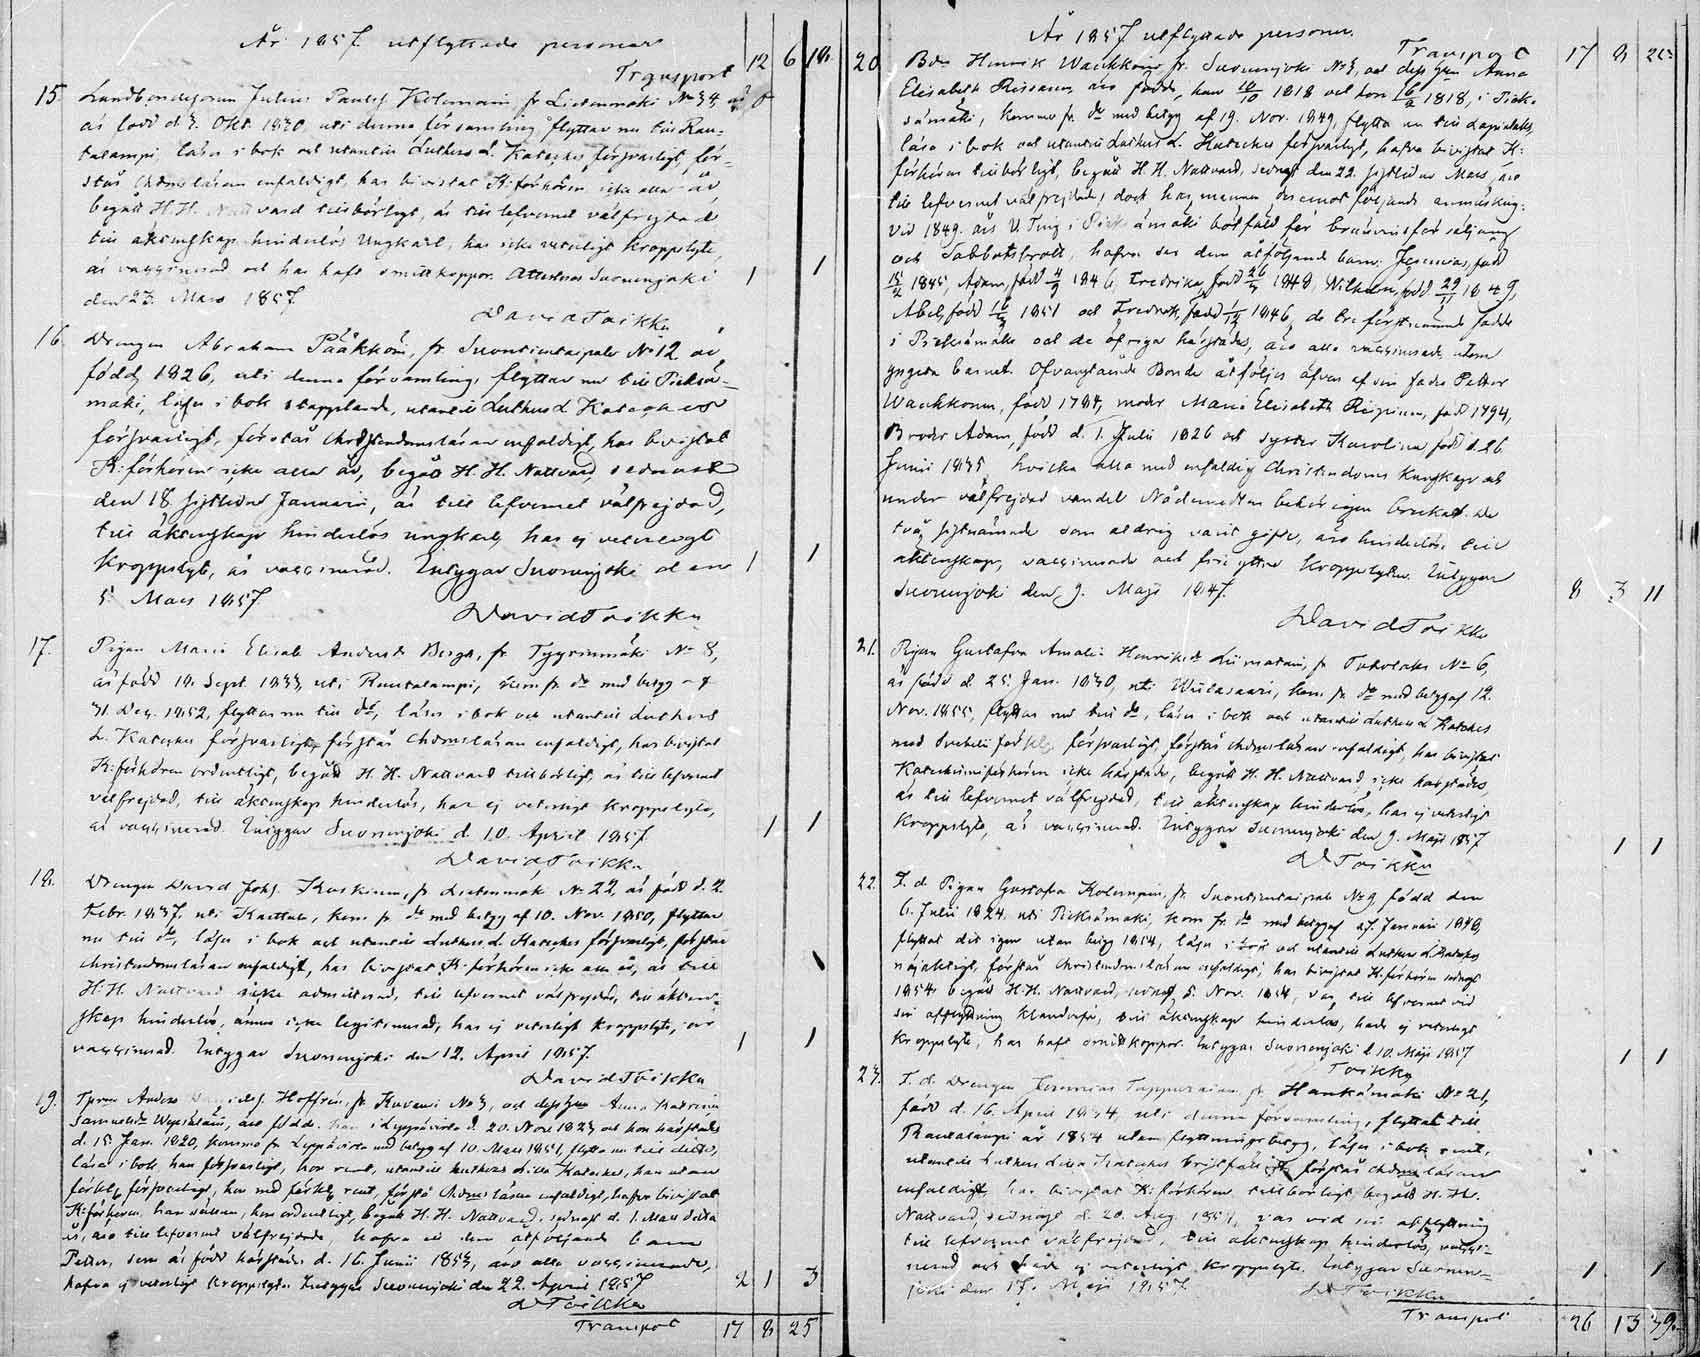 År 1857. utflyttade personer
Transport 12 6 18
15. Landbondesonen Julius Paulsf Kolemain, fr Lietenmäki No 34,
är född d. 3. Okt. 1830. uti denna församling flyttar nu till Rau-
talampi, läser i bok och utantill Luthers L. Kateches försvarligt, för-
står chdmsläran enfaldigt, har bivistat K:förhören icke alla år
begått H.H. Nattvard tillbörligt, är till lefvernet välfrejdad
till äktenskap hinderlös ungkarl, har icke veterligt kroppslyte,
är vaccinerad och har haft smittkoppor. Attesteras Suonenjoki 1 1
den 23. Mars 1857.
David Toikka
16. Drengen Abraham Pääkkön, fr. Suontientaipale No 12 är
född 1826, uti denna församling, flyttar nu till Pieksä-
mäki, läser i bok stapplande, utantill Luthers L Kateches
försvarligt, förstår Christendomsläran enfaldigt, har bevistat
K:förhören icke alla år, begått H.H. Nattvard, sednast
den 18 sistlidne Januarii, är till lefvernet välfrejdad,
till äktenskap hinderlös ungkarl, har ej veterligt
kroppslyte, är vaccinerad. Intygar Suonenjoki den 1 1
5. Mars 1857.
David Toikka
17. Pigan Maria Elisab. Andersdr Bergh, fr Tyyrinmäki No 8,
är född 19. Sept. 1833, uti Rautalampi, kom fr. do med betyg af
31. Dec. 1852, flyttar nu till do, läser i bok och utantill Luthers
L. Kateches försvarligt, förstår Chdmsläran enfaldigt, har bevistat
K:förhören ordentligt, begått H.H. Nattvard tillbörligt, är till lefvernet
välfrejdad, till äktenskap hinderlös, har ej veterligt kroppslyte,
är vaccinerad. Intygar Suonenjoki d. 10. April 1857. 1 1
David Toikka
18. Drengen David Johs. Koskinen, fr Lietenmäk No 22, är född d. 2.
Febr. 1837. uti Karttula, kom fr do med betyg af 10. Nov. 1850, flyttar
nu till do, läser i bok och utantill Luthers L. Kateches försvarligt, förstår
christendomsläran enfaldigt, har bevistat K:förhören icke alla år, är till
H.H. Nattvard icke admitterad, till lefvernet välfrejdad, till äkten-
skap hinderlös, ännu icke legitimerad, har ej veterligt kroppslyte, är
vaccinerad. Intygar Suonenjoki den 12. April 1857. 1 1
David Toikka
19. Anders Hoffrén, fr Kuvansi No 3, och dess hustru Anna Katrina
Samuelsdr äro födde, han i Leppävirta d. 20. Nov. 1823 och hon härstädes
d. 15. Jan. 1820, komma fr Leppävirta med betyg af 10. Mars 1851, flytta nu till ditto,
läsa i bok, han försvarligt, hon rent, utantill Luthers Lilla Kateches, han utan
förkl. försvarligt, hon med förkl. rent, förstå Chdmsläran enfaldigt, hafva bevistat
K:förhören, han sällan, hon ordentligt, begått H.H. Nattvard, sednast d. 1. Mars detta
år, äro till lefvernet välfrejdade, hafva en dem åtföljande barn
Petter, som är född härstädes d. 16. Junii 1853, äro alla vaccinerade,
hafva ej veterligt kroppslyte. Intygar Suonenjoki den 22. April 1857. 2 1 3
D Toikka
Transport 17 8 25
År 1857 utflyttade personer.
Transport 17 8 25
20. Bdn Henrik Waukkoin fr. Suonenjoki No 3, och dess hustru Anna
Elisabeth Rissanen, äro födde, han 10/10 1818 och hon 1818, i Piek-
sämäki, komma fr. do med betyg af 19. Nov. 1849, flytta nu till Lapinlaks,
läsa i bok och utantill Luthers L. Kateches försvarligt, hafva bivistat K:
förhören tillbörligt, begått H.H. Nattvard, sednast den 22. sistlidne Mars, äro
till lefvernet välfrejdade, dock har mannen deremot följande anmärkning:
vid 1849. års V. Ting i Pieksämäki bötfäld för brännvinsförsäljning
och Sabbatsbrott, hafva sex dem åtföljande barn: Jeremias, född
1845, Adam, född 4/9 1846, Fredrika, född 1848, Wilhelm, född 29/11 1849,
Abel, född 1851 och Fredrik, född 1856, de tre förstnämnde födde
i Pieksämäki och de öfriga härstädes, äro alla vaccinerade, utom
yngsta barnet. Ofvanstående Bonde åtföljes äfven af sin fader Petter
Waukkonen, född 1784, moder Maria Elisabeth född 1794,
Broder Adam, född d. 1. Julii 1826 och syster Karolina född d. 26.
Junii 1835, hvilka alla med enfaldig Christendoms kunskap och
under välfrejdad vandel Nådemedlen behörigen brukat. De
två sistnämnde som aldrig varit gifte, äro hinderlösa till
äktenskap, vaccinerade och fria yttre kroppslyten. Intygar
Suonenjoki den 9. Maji 1857. 8 3 11
David Toikka
21. Pigan Gustafva Amalia Henriksdr Liimatain, fr Toholaks No 6,
är född d. 25. Jan. 1830, uti kom fr do med betyg af 12.
Nov. 1855, flyttar nu till do, läser i bok och utantill Luthers L. Kateches
med förkl. försvarligt, förstår chdmsläran enfaldigt, har bivistat
Katechismiförhören icke härstädes, begått H.H. Nattvard icke härstädes,
är till lefvernet välfrejdad, till äktenskap hinderlös, har ej veterligt
kroppslyte, är vaccinerad. Intygar Suonenjoki den 9. Maji 1857. 1 1
D Toikka
22. F. d. Pigan Gustafva Kolemain, fr. Suontientaipale No 9, född den
6. Julii 1824. uti Pieksämäki, kom fr. do med betyg af 7. Januari 1848,
flyttat dit igen utan betyg 1854, läser i bok och utantill Luthers L. Kateches
nöjaktigt, förstår Christendomsläran enfaldigt, har bivistat K:förhören sednast
1854, begått H.H. Nattvard, sednast 5. Nov. 1854, var till lefvernet vid
sin afflyttning klanderfri, till äktenskap hinderlös, hade ej veterligt
kroppslyte, har haft smittkoppor. Intygar Suonenjoki d. 10. Maji 1857. 1 1
Toikka
23. F. d. Drengen Jeremias Tappurainen, fr. Hankamäki No 21,
född d. 16. April 1834. uti denna församling, flyttat till
Rautalampi år 1854 utan flyttningsbetyg, läser i bok rent,
utantill Luthers Lilla Kateches bristfälligt, förstår chdmsläran
enfaldigt, har bivistat K:förhören tillbörligt, begått H.H.
Nattvard, sednast d. 20. Aug. 1854, var vid sin afflyttning
till lefvernet välfrejdad, till äktenskap hinderlös, vacci-
nerad och hade ej veterligt kroppslyte. Intygar Suonen-
joki den 17. Maji 1857. 1 1
D Toikka
Transport 26 13 39